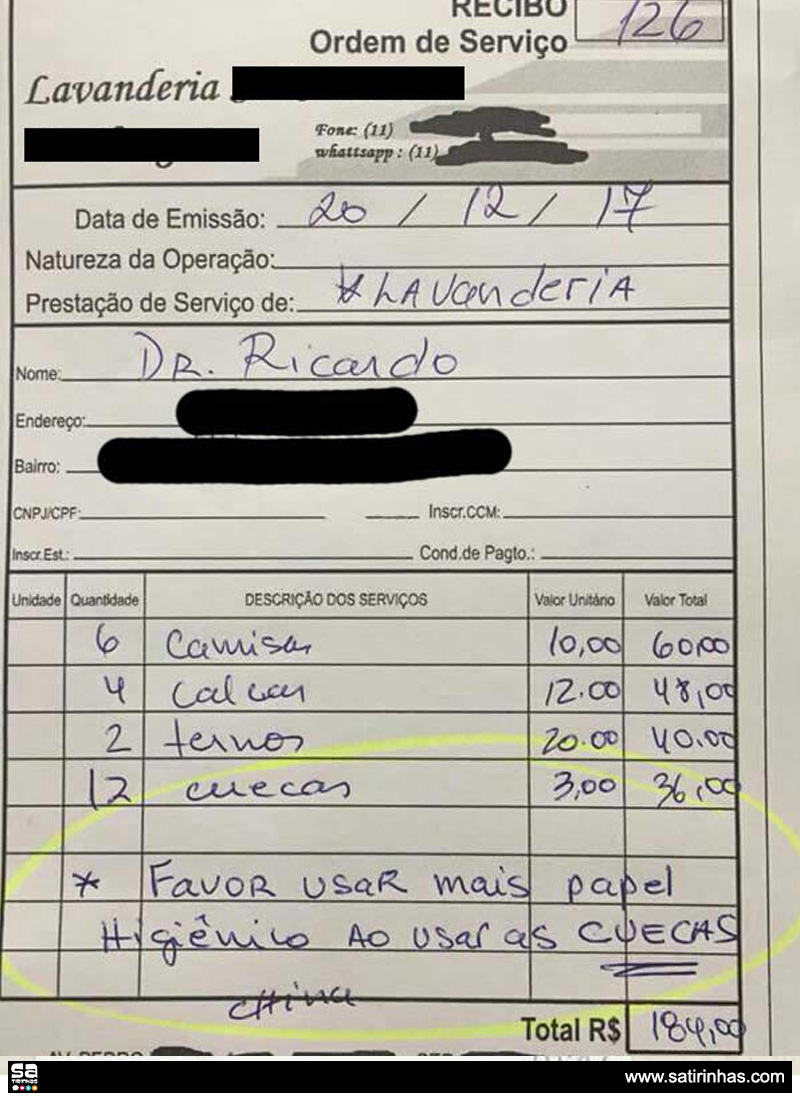 RECIBO 126
Ordem de Serviço
Lavanderia
Fone: (11)
whattsapp : (11)
Data de Emissão: 20 / 12 / 17
Natureza da Operação:
Prestação de Serviço de: * LAVanderiA
Nome: DR. Ricardo
Endereço:
Bairro:
CNPJ/CPF: Inscr.CCM:
Inscr.Est.: Cond.de Pagto.:
Unidade Quantidade DESCRIÇÃO DOS SERVIÇOS Valor Unitário Valor Total
6 Camisas 10,00 60,00
4 calças 12.00 48,00
2 ternos 20.00 40.00
12 cuecas 3,00 36,00
* FAVOR USAR mais papel
Higiênico AO USAr as CUECAS
Total R$ 184,00
SA
TIRINHAS
www.satirinhas.com